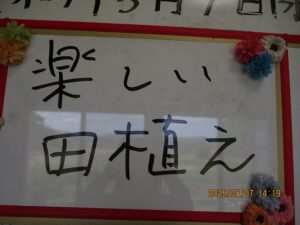 楽しい
田植え
2025/06/07 14:19